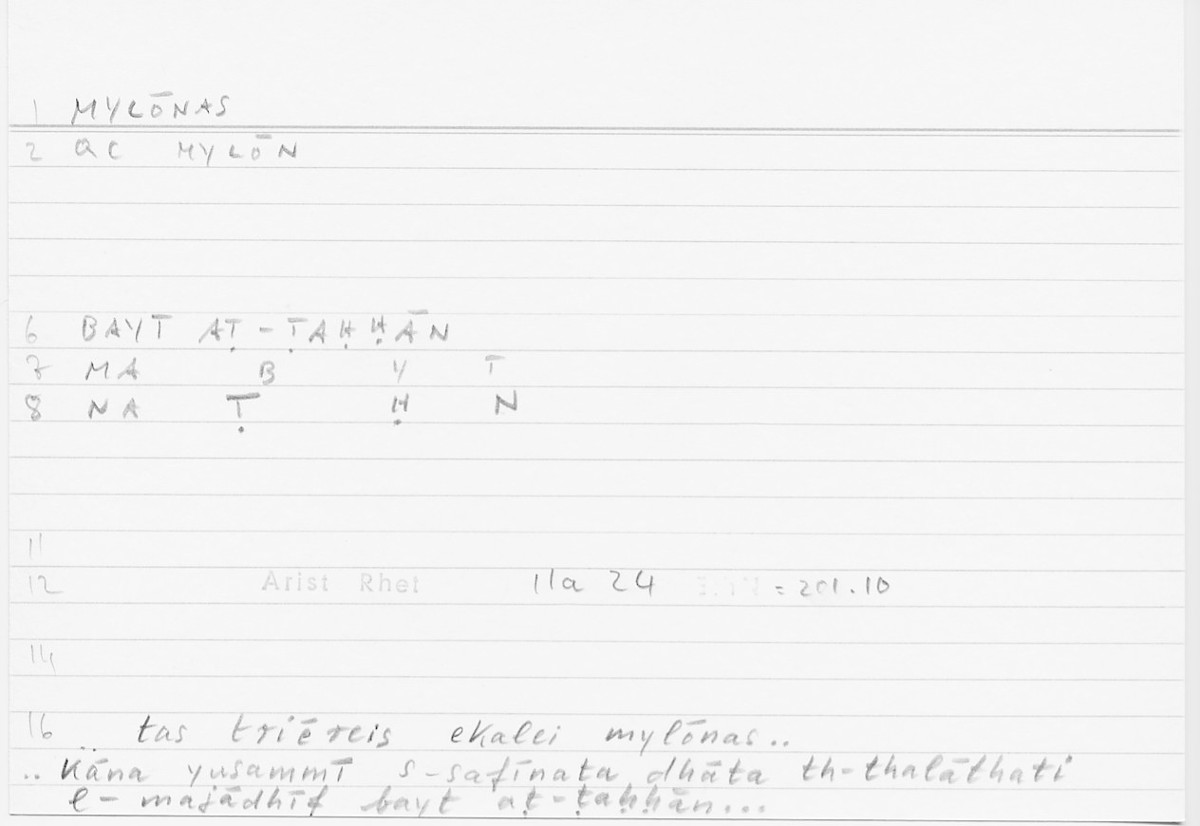 1 MYLŌNAS
2 QC MYLŌN
6 BAYT AṬ-ṬAḤḤĀN
7 MA B Y T
8 NA Ṭ Ḥ N
11
12 Arist Rhet 11a 24 = 201.10
14
16 tas triēreis ekalei mylōnas..
.. Kāna yusammī s-safīnata dhāta th-thalāthati
l-majādhīf bayt aṭ-ṭaḥḥān...